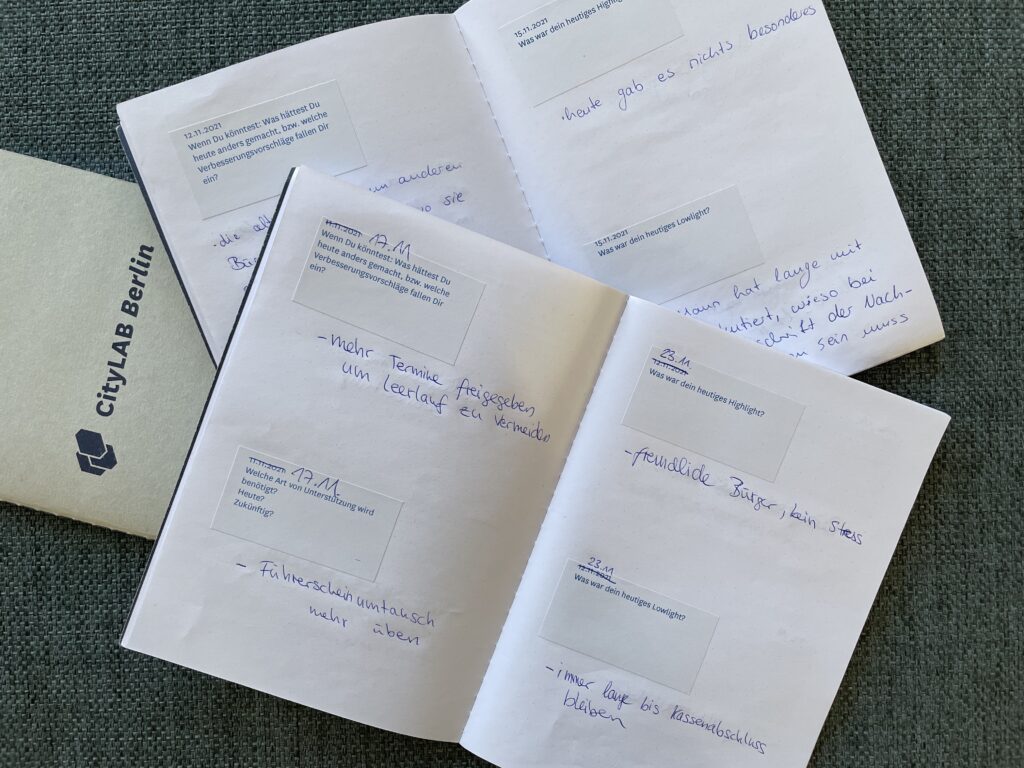 CityLAB Berlin
12.11.2021
Wenn Du könntest: Was hättest Du
heute anders gemacht, bzw. welche
Verbesserungsvorschläge fallen Dir
ein?
anderen
sie
15.11.2021
Was war dein heutiges Highlight?
· heute gab es nichts besonderes
15.11.2021
Was war dein heutiges Lowlight?
hat lange mit
wieso bei
der Nach-
sein muss
11.11.2021 17.11.
Wenn Du könntest: Was hättest Du
heute anders gemacht, bzw. welche
Verbesserungsvorschläge fallen Dir
ein?
- mehr Termine freigegeben
um leerlauf zu vermeiden
11.11.2021 17.11.
Welche Art von Unterstützung wird
benötigt?
Heute?
Zukünftig?
- Führerscheinumtausch
mehr üben
23.11.
12.11.2021
Was war dein heutiges Highlight?
- freundliche Bürger, kein stress
23.11.
12.11.2021
Was war dein heutiges Lowlight?
- immer lange bis Kassenabschluss
bleiben